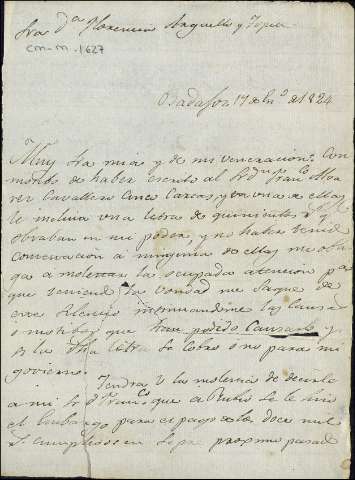 Sra Dª Florencia Arguello y Tapia
CM-M-1627
Badajoz 17 de Enº de 1824
Muy Sra mia y de mi veneracion: Con
motibo de haber escrito al Sr Dn Franco Alva
rez Cavallero Cinco Cartas, y en una de ellas
le incluia una letra de quinientos rs q
obraban en mi poder, y no haber tenido
Contestacion a ninguna de ellas me obli
ga a molestar su ocupada atencion pa
que teniendo la vondad me saque de
este informandome las causas
o motibos que han podido Causarlo y
si la dha letra se cobro o no para mi
govierno.
Tendra V la molestia de decirle
a mi Sr Dn Franco que a Rubio se le hizo
el embargo para el pago de los doce mil
rs cumplidos en Sepe proximo pasado